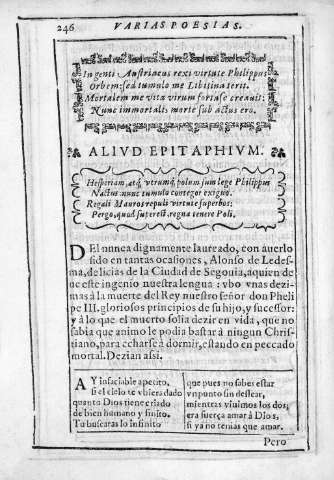 246 VARIAS POESIAS.
Ingenti Austriacus rexi virtute Philippus
Orbem: sed tumulo me Libitina terit.
Mortalem me vita virum creauit:
Nunc immortali morte sub actus ero.
ALIVD EPITAPHIVM.
Hesperiam, atq; vtrumq; polum sum lege Philippus
Nactus nunc tumulo contegor exiguo.
Regali Mauros repuli virtute superbos:
Pergo, quod superest, regna tenere Poli.
DEl nunca dignamente laureado, con auerlo
sido en tantas ocasiones, Alonso de Ledes-
ma, delicias de la Ciudad de Segouia, a quien de
ue este ingenio nuestra lengua: vbo vnas dezi-
mas à la muerte del Rey nuestro señor don Pheli
pe III. gloriosos principios de su hijo, y sucessor:
y à lo que el muerto solia dezir en vida, que no
sabia que animo le podia bastar à ningun Chris-
tiano, para echarse à dormir, estando en peccado
mortal. Dezian assi.
AY insaciable apetito,
si el cielo te vbiera dado
quanto Dios tiene criado
de bien humano y finito.
Tu buscaras lo infinito
que pues no sabes estar
vn punto sin dessear,
mientras viuimos los dos,
era fuerça amar à Dios,
si ya no tenias que amar.
Pero